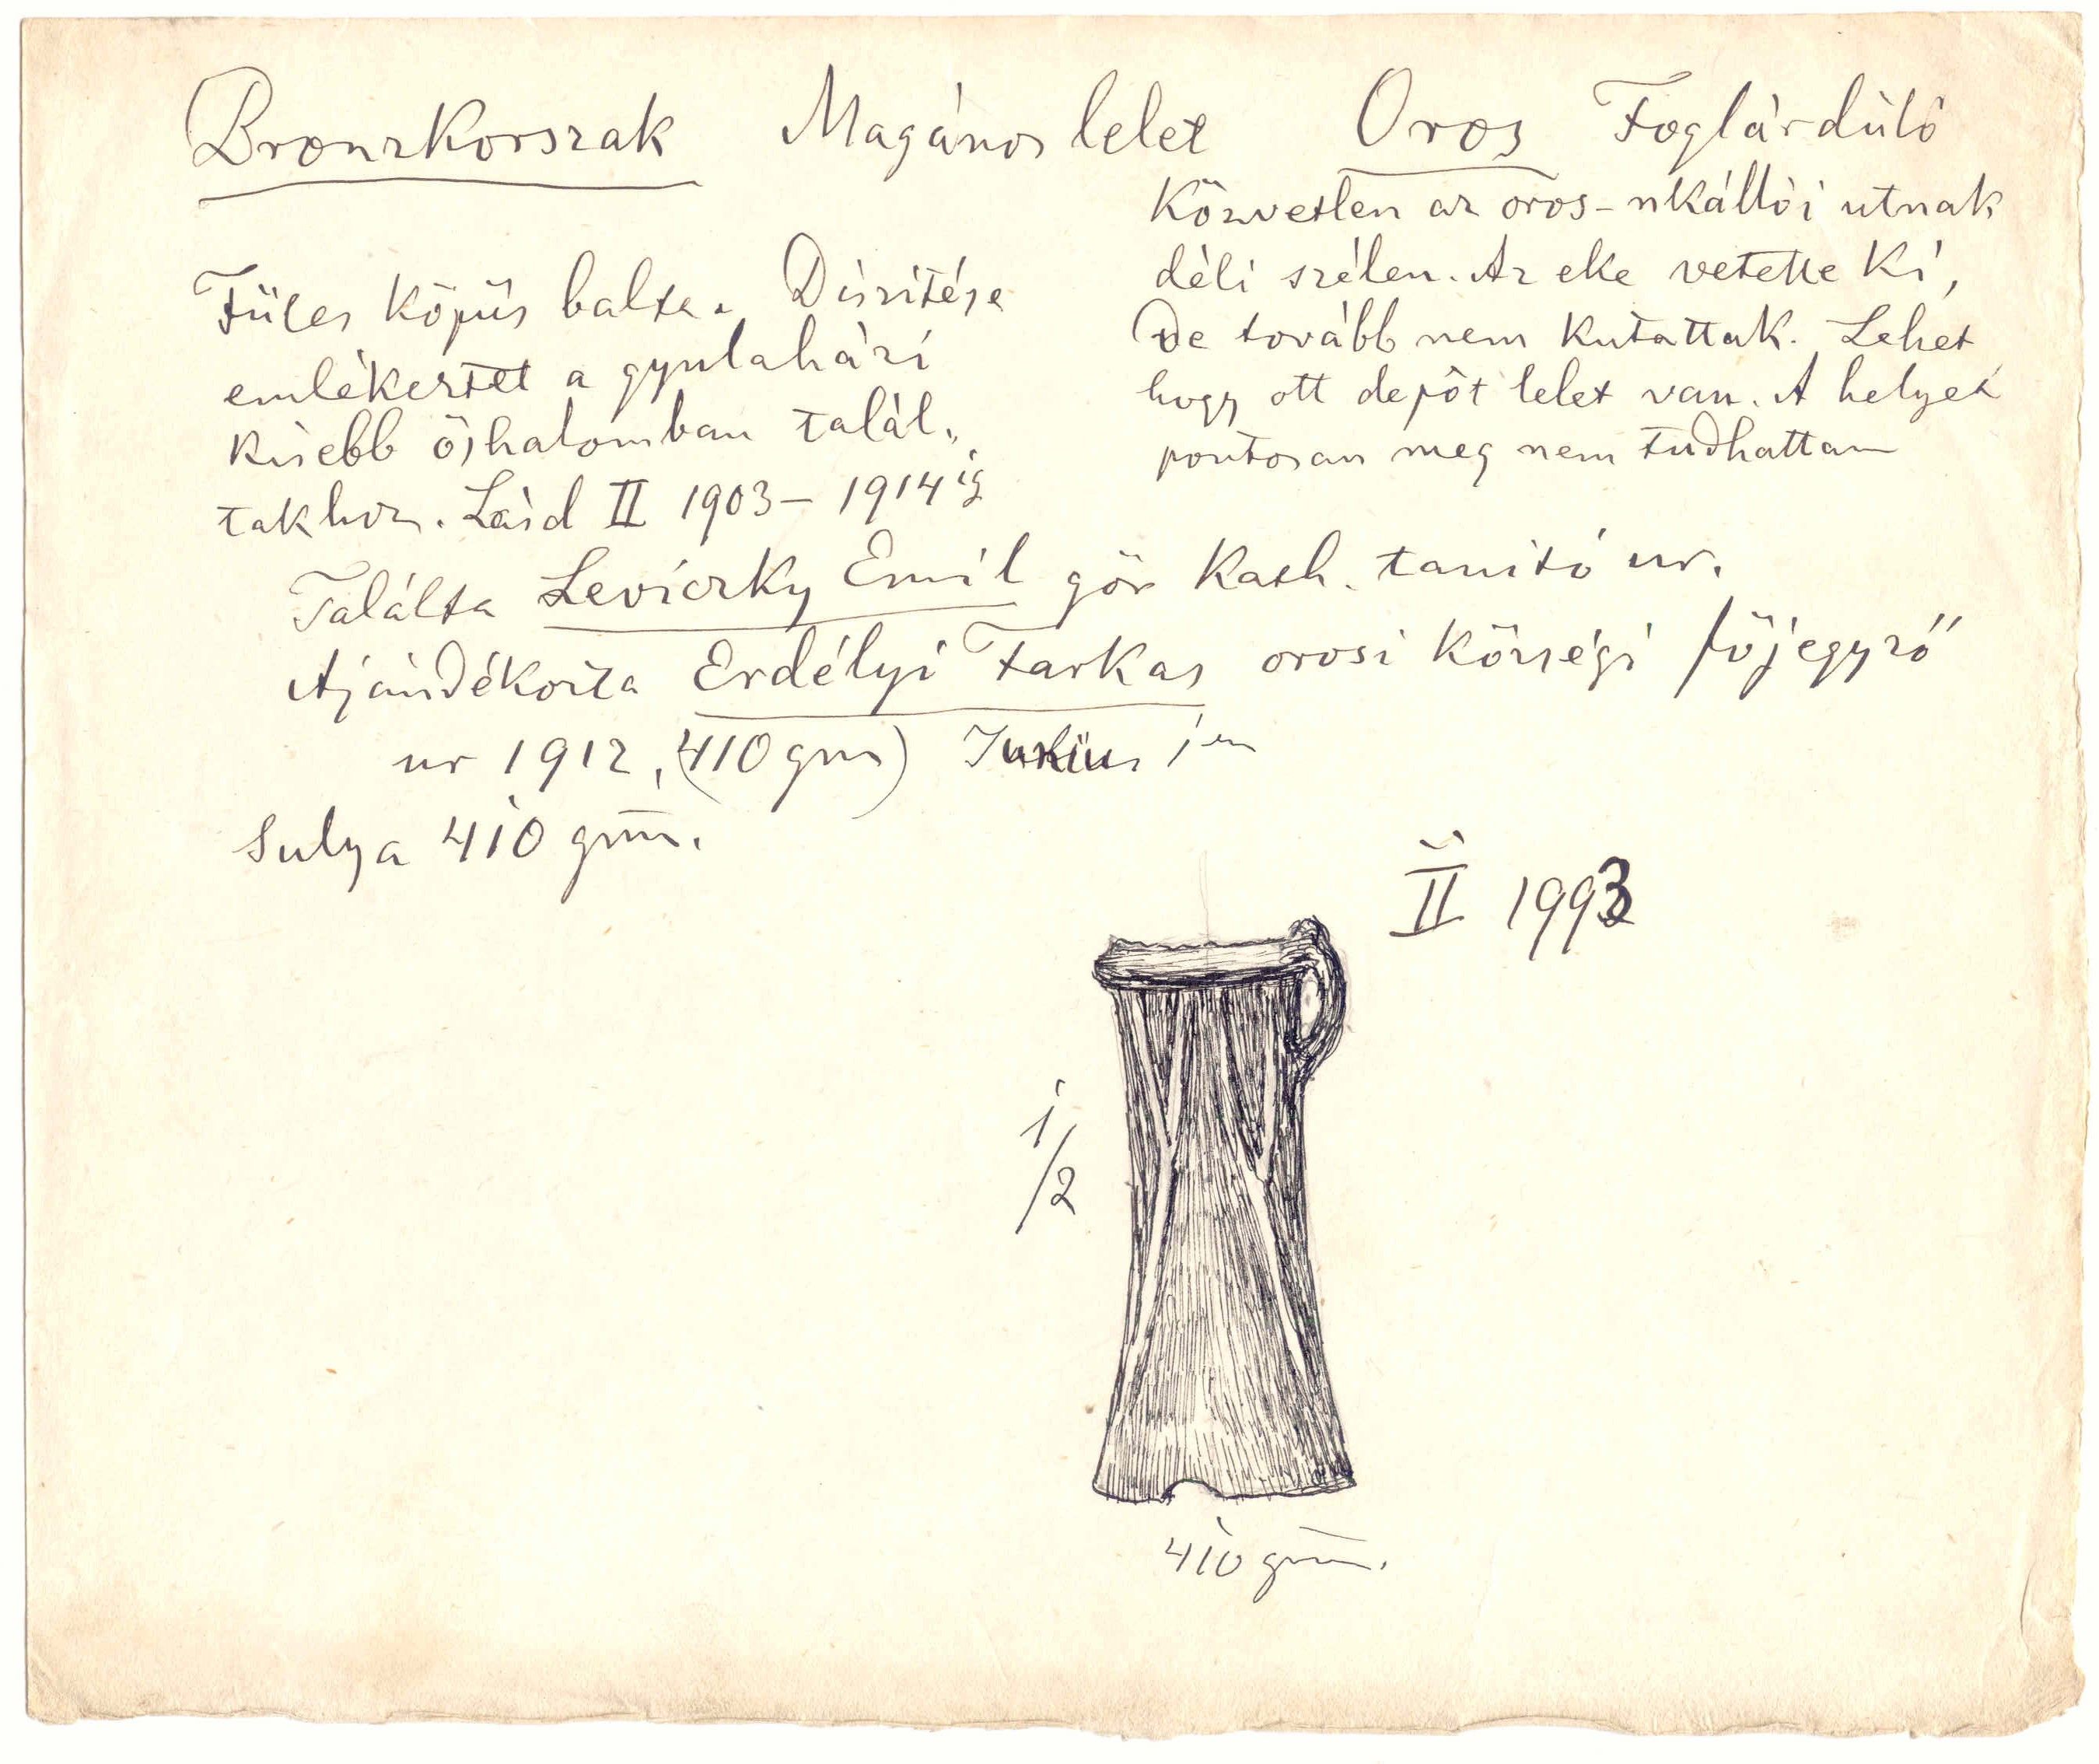 Bronzkorszak Magános lelet Oros Foglárdülő
Közvetlen az oros-nkállói utnak
déli szélen. Az eke vetette ki,
de tovább nem kutattak. Lehet
hogy ott depôt lelet van. A helyet
pontosan meg nem tudhattam
Füles köpüs balta. Díszitése
emlékeztet a gyulaházi
kisebb őshalomban talál„
takhoz. Lásd II 1903–1914ig
Találta Leviczky Emil gör kath. tanító ur.
Ajándékozta Erdélyi Farkas orosi községi főjegyző
ur 1912, (410 gm) 1én
Sulya 410 gm.
II 1993
1/2
410 gm.